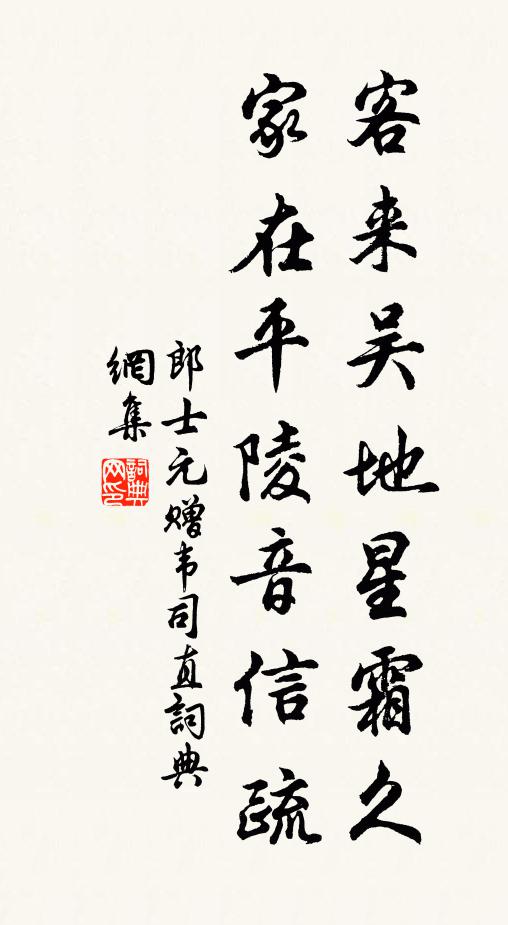 客来吴地星霜久
家在平陵音信疏
郎士元赠韦司直詞典
網集
詞典网印